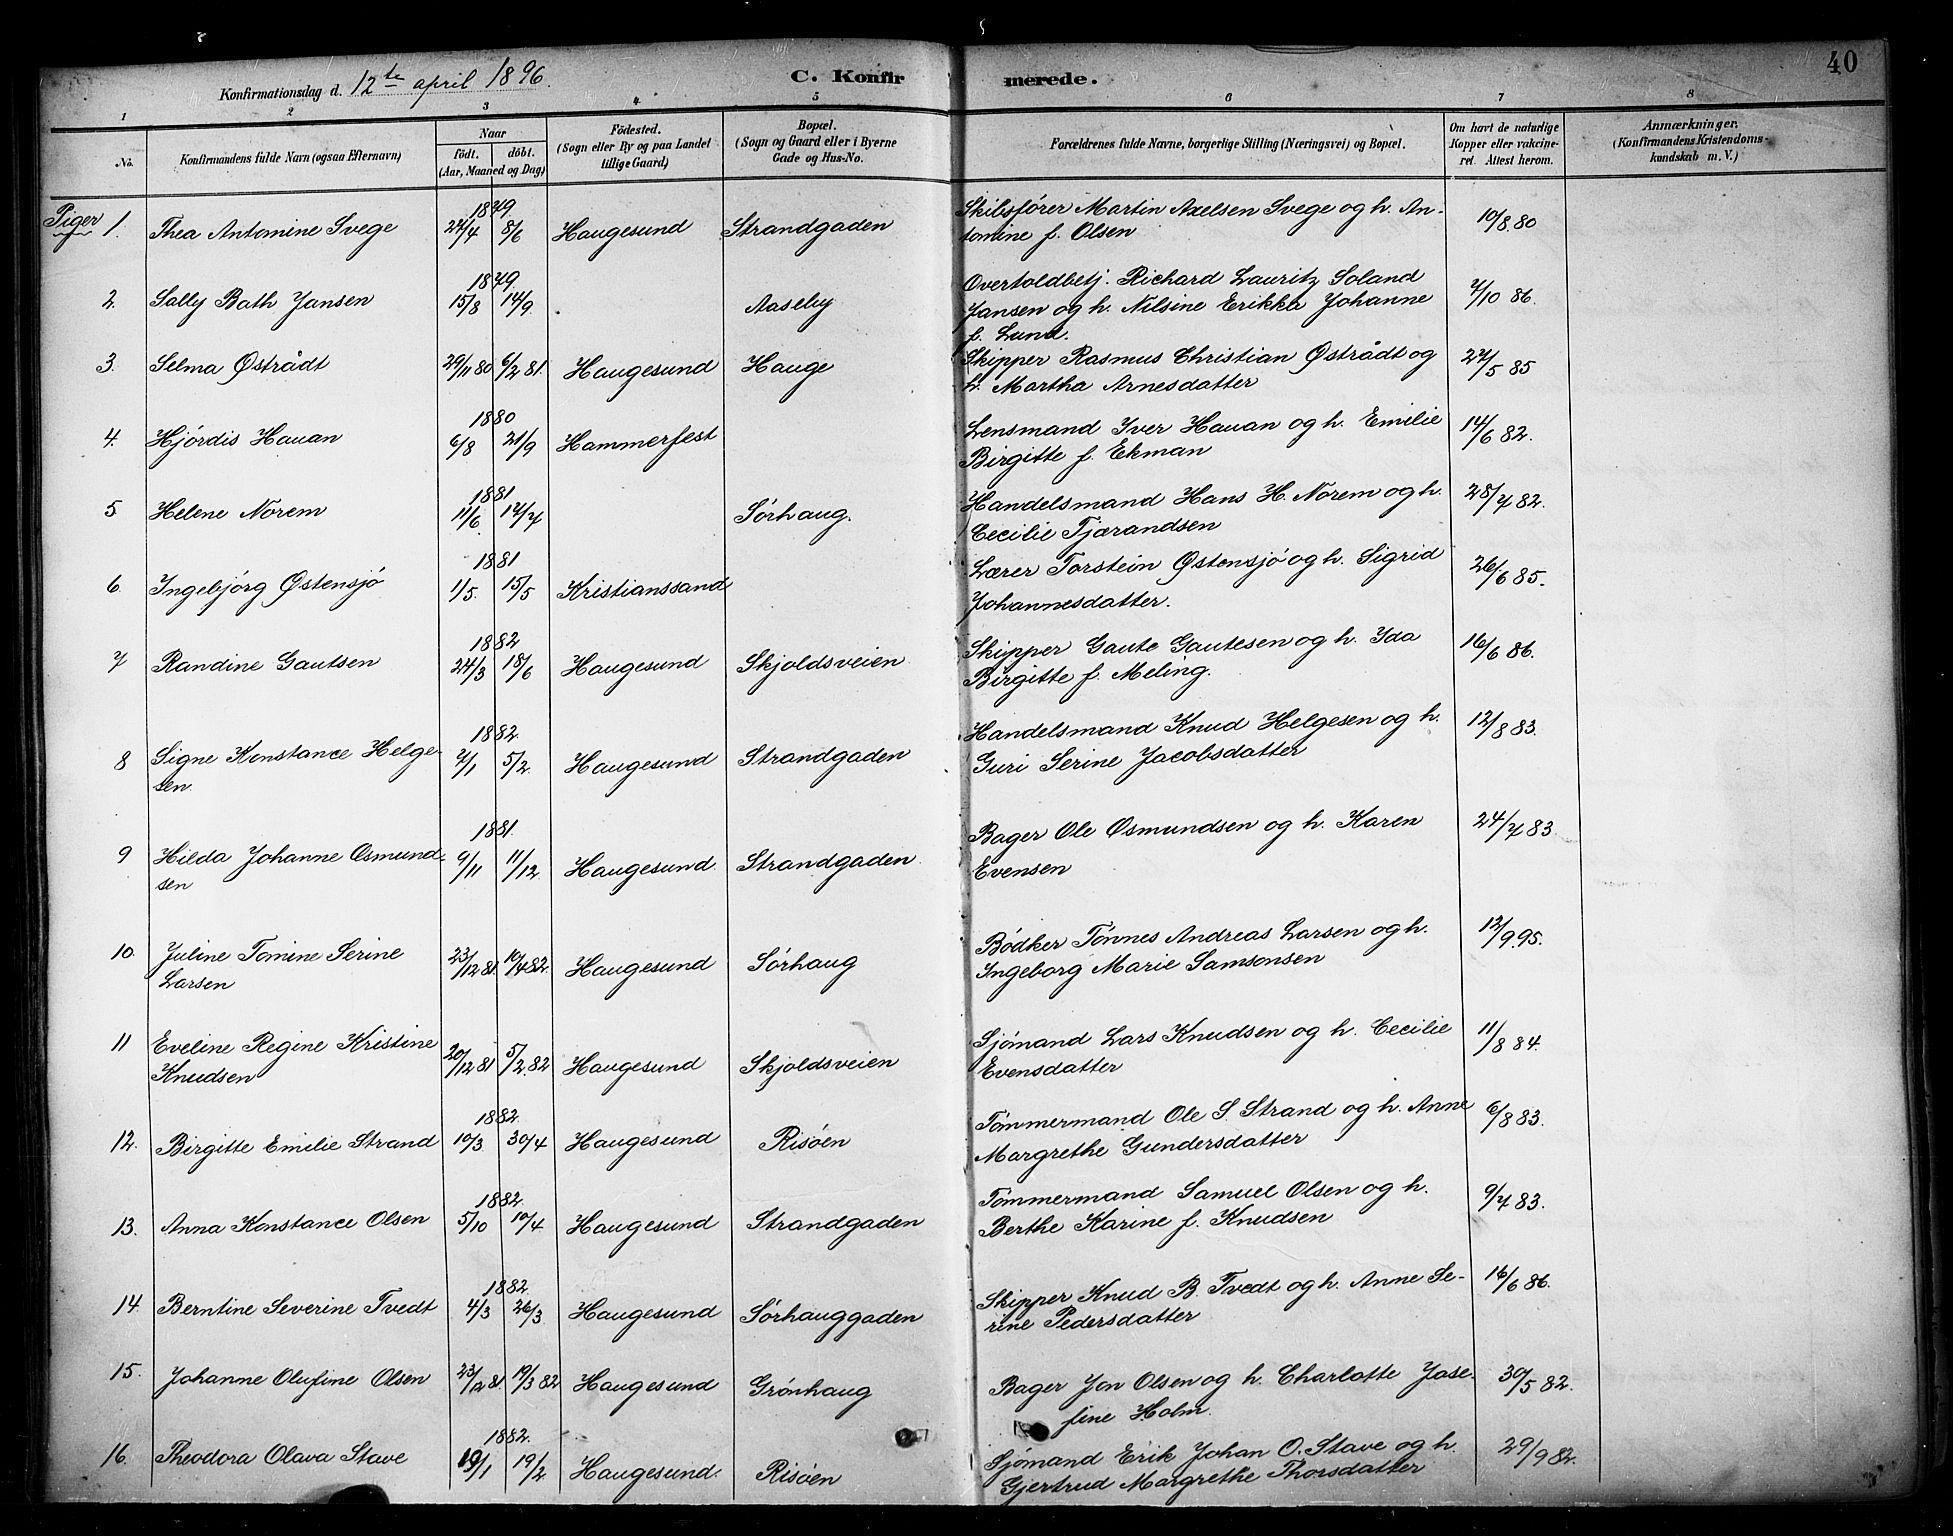 40
Konfirmationsdag d. 12te april 1896.
C. Konfirmerede.
1 2 3 4 5 6 7 8
No.
Konfirmandens fulde Navn (ogsaa Efternavn)
Naar
födt. döbt.
(Aar, Maaned og Dag)
Födested.
(Sogn eller By og paa Landet
tillige Gaard)
Bopæl.
(Sogn og Gaard eller i Byerne
Gade og Hus-No.
Forældrenes fulde Navne, borgerlige Stilling (Næringsvei) og Bopæl.
Om havt de naturlige
Kopper eller vakcine-
ret. Attest herom.
Anmærkninger.
(Konfirmandens Kristendoms-
kundskab m. V.)
Piger
1. Thea Antomine Svege 1879 24/4 8/6 Haugesund Strandgaden Skibsfører Martin Axelsen Svege og h. An-
tomine f. Olsen 10/8.80
2. Sally Bath Jansen 1879 15/8 14/9. Aaseby Overtoldbetj. Richard Lauritz Soland
Jansen og h. Nilsine Erikka Johanne
f. Lund. 7/10 86.
3. Selma Østrådt 29/11 80 6/2 81. Haugesund Hauge Skipper Rasmus Christian Østrådt og
h. Martha Arnesdatter 27/5 85
4. Hjördis Hauan 1880 6/8 21/9 Hammerfest Lensmand Iver Hauan og h. Emilie
Birgitte f. Ekman 14/6 82.
5 Helene Norem 1881 11/6. 17/7 Sørhaug. Handelsmand Hans H. Norem og h.
Cecilie Tjærandsen 28/7 82.
6. Ingebjörg Østensjö 1881 1/5. 15/5 Kristianssand Lærer Torstein Østensjö og h. Sigrid
Johannesdatter. 26/6 85.
7 Randine Gautsen 1882 24/3 18/6 Haugesund Skjoldsveien Skipper Gaute Gautesen og h. Ida
Birgitte f. Meling. 16/6 86.
8 Signe Konstance Helge-
sen. 1882. 7/1 5/2. Haugesund Strandgaden Handelsmand Knud Helgesen og h.
Guri Serine Jacobsdatter 12/8 83.
9 Hilda Johanne Osmund-
sen 1881. 9/11 11/12. Haugesund. Strandgaden. Bager Ole Osmundsen og h. Karen
Evensen 24/7 83.
10. Juline Tomine Serine
Larsen 23/12 81. 10/4 82. Haugesund Sørhaug Bødker Tønnes Andreas Larsen og h.
Ingeborg Marie Samsonsen 12/9.95.
11 Eveline Regine Kristine
Knudsen 20/12 81 5/2.82 Haugesund Skjoldsveien Sjømand Lars Knudsen og h. Cecilie
Evensdatter 11/8 84.
12. Birgitte Emilie Strand 1882. 10/3 30/4 Haugesund Risöen Tømmermand Ole S. Strand og h. Anne
Margrethe Gundersdatter 6/8 83.
13. Anna Konstance Olsen 1882. 5/10 10/4 Haugesund Strandgaden Tømmermand Samuel Olsen og h.
Berthe Karine f. Knudsen 9/7 83.
14. Berntine Severine Tvedt 1882. 4/3 26/3 Haugesund Sørhauggaden Skipper Knud B. Tvedt og h. Anne Se-
rine Pedersdatter 16/6 86.
15. Johanne Olufine Olsen 23/12 81. 19/3 82 Haugesund Grønhaug Bager Jon Olsen og h. Charlotte Jose-
fine Holm. 30/5 82.
16. Theodora Olava Stave 1882. 19/1 19/2 Haugesund. Risöen Sjømand Erik Johan O. Stave og h.
Gjertrud Margrethe Thorsdatter 29/9 82.